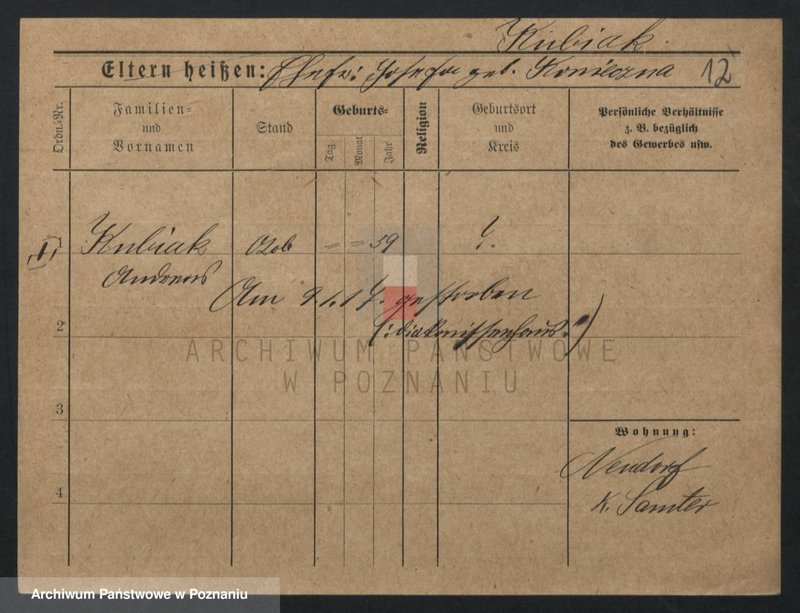 Kubiak
Eltern heißen: Ehefr: Josefa geb. Konieczna 12
Ordn.-Nr.
Familien- und Vornamen
Stand
Geburts-
Tag
Monat
Jahr
Religion
Geburtsort und Kreis
Persönliche Verhältnisse
z. B. bezüglich
des Gewerbes usw.
1 Kubiak – – 59 ?
Andreas
Am 9.1.17. gestorben
(: Diakonissenhaus :)
2
ARCHIWUM PAŃSTWOWE
W POZNANIU
3
Wohnung:
Neudorf
4
K. Samter
Archiwum Państwowe w Poznaniu